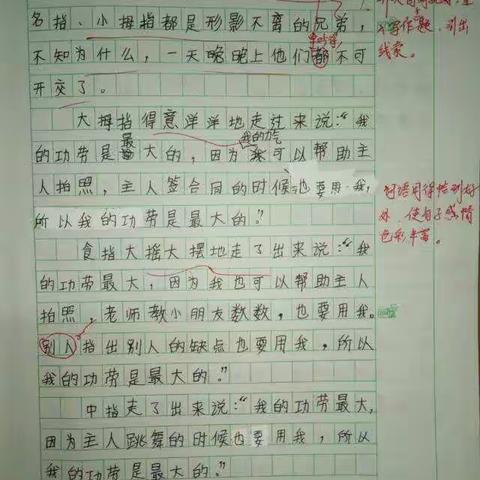 名指、小拇指都是形影不离的兄弟，
不知为什么，一天晚晚上他们都不可
开交了。
大拇指得意洋洋地走过来说：“我
的功劳是最大的，因为我可以帮助主
我的力气
人拍照，主人签合同的时候也要用我，
所以我的功劳是最大的。”
食指大摇大摆地走了出来说：“我
的功劳最大，因为我也可以帮助主人
拍照，老师教小朋友数数，也要用我。
别人指出别人的缺点也要用我，所以
我的功劳是最大的。”
中指走了出来说：“我的功劳最大，
因为主人跳舞的时候也要用我，所以
我的功劳是最大的。”
引出
线索。
词语用得恰到好
处，使句子感情
色彩丰富。